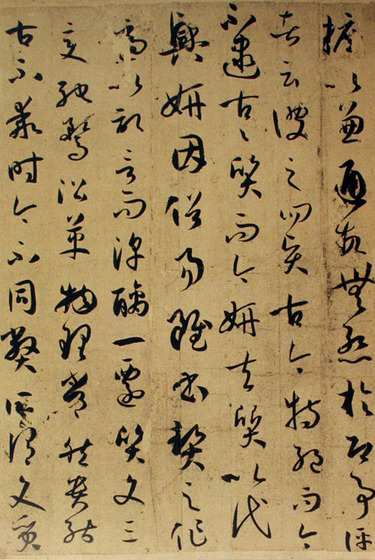 摭以兼通故無慚於即事評
者云彼之四賢古今特絕而今
不逮古〻質而今妍夫質以代
興妍因俗易雖書契之作
適以記言而淳醨一遷質文三
變馳騖沿革物理常然貴能
古不乖時今不同弊所謂文質